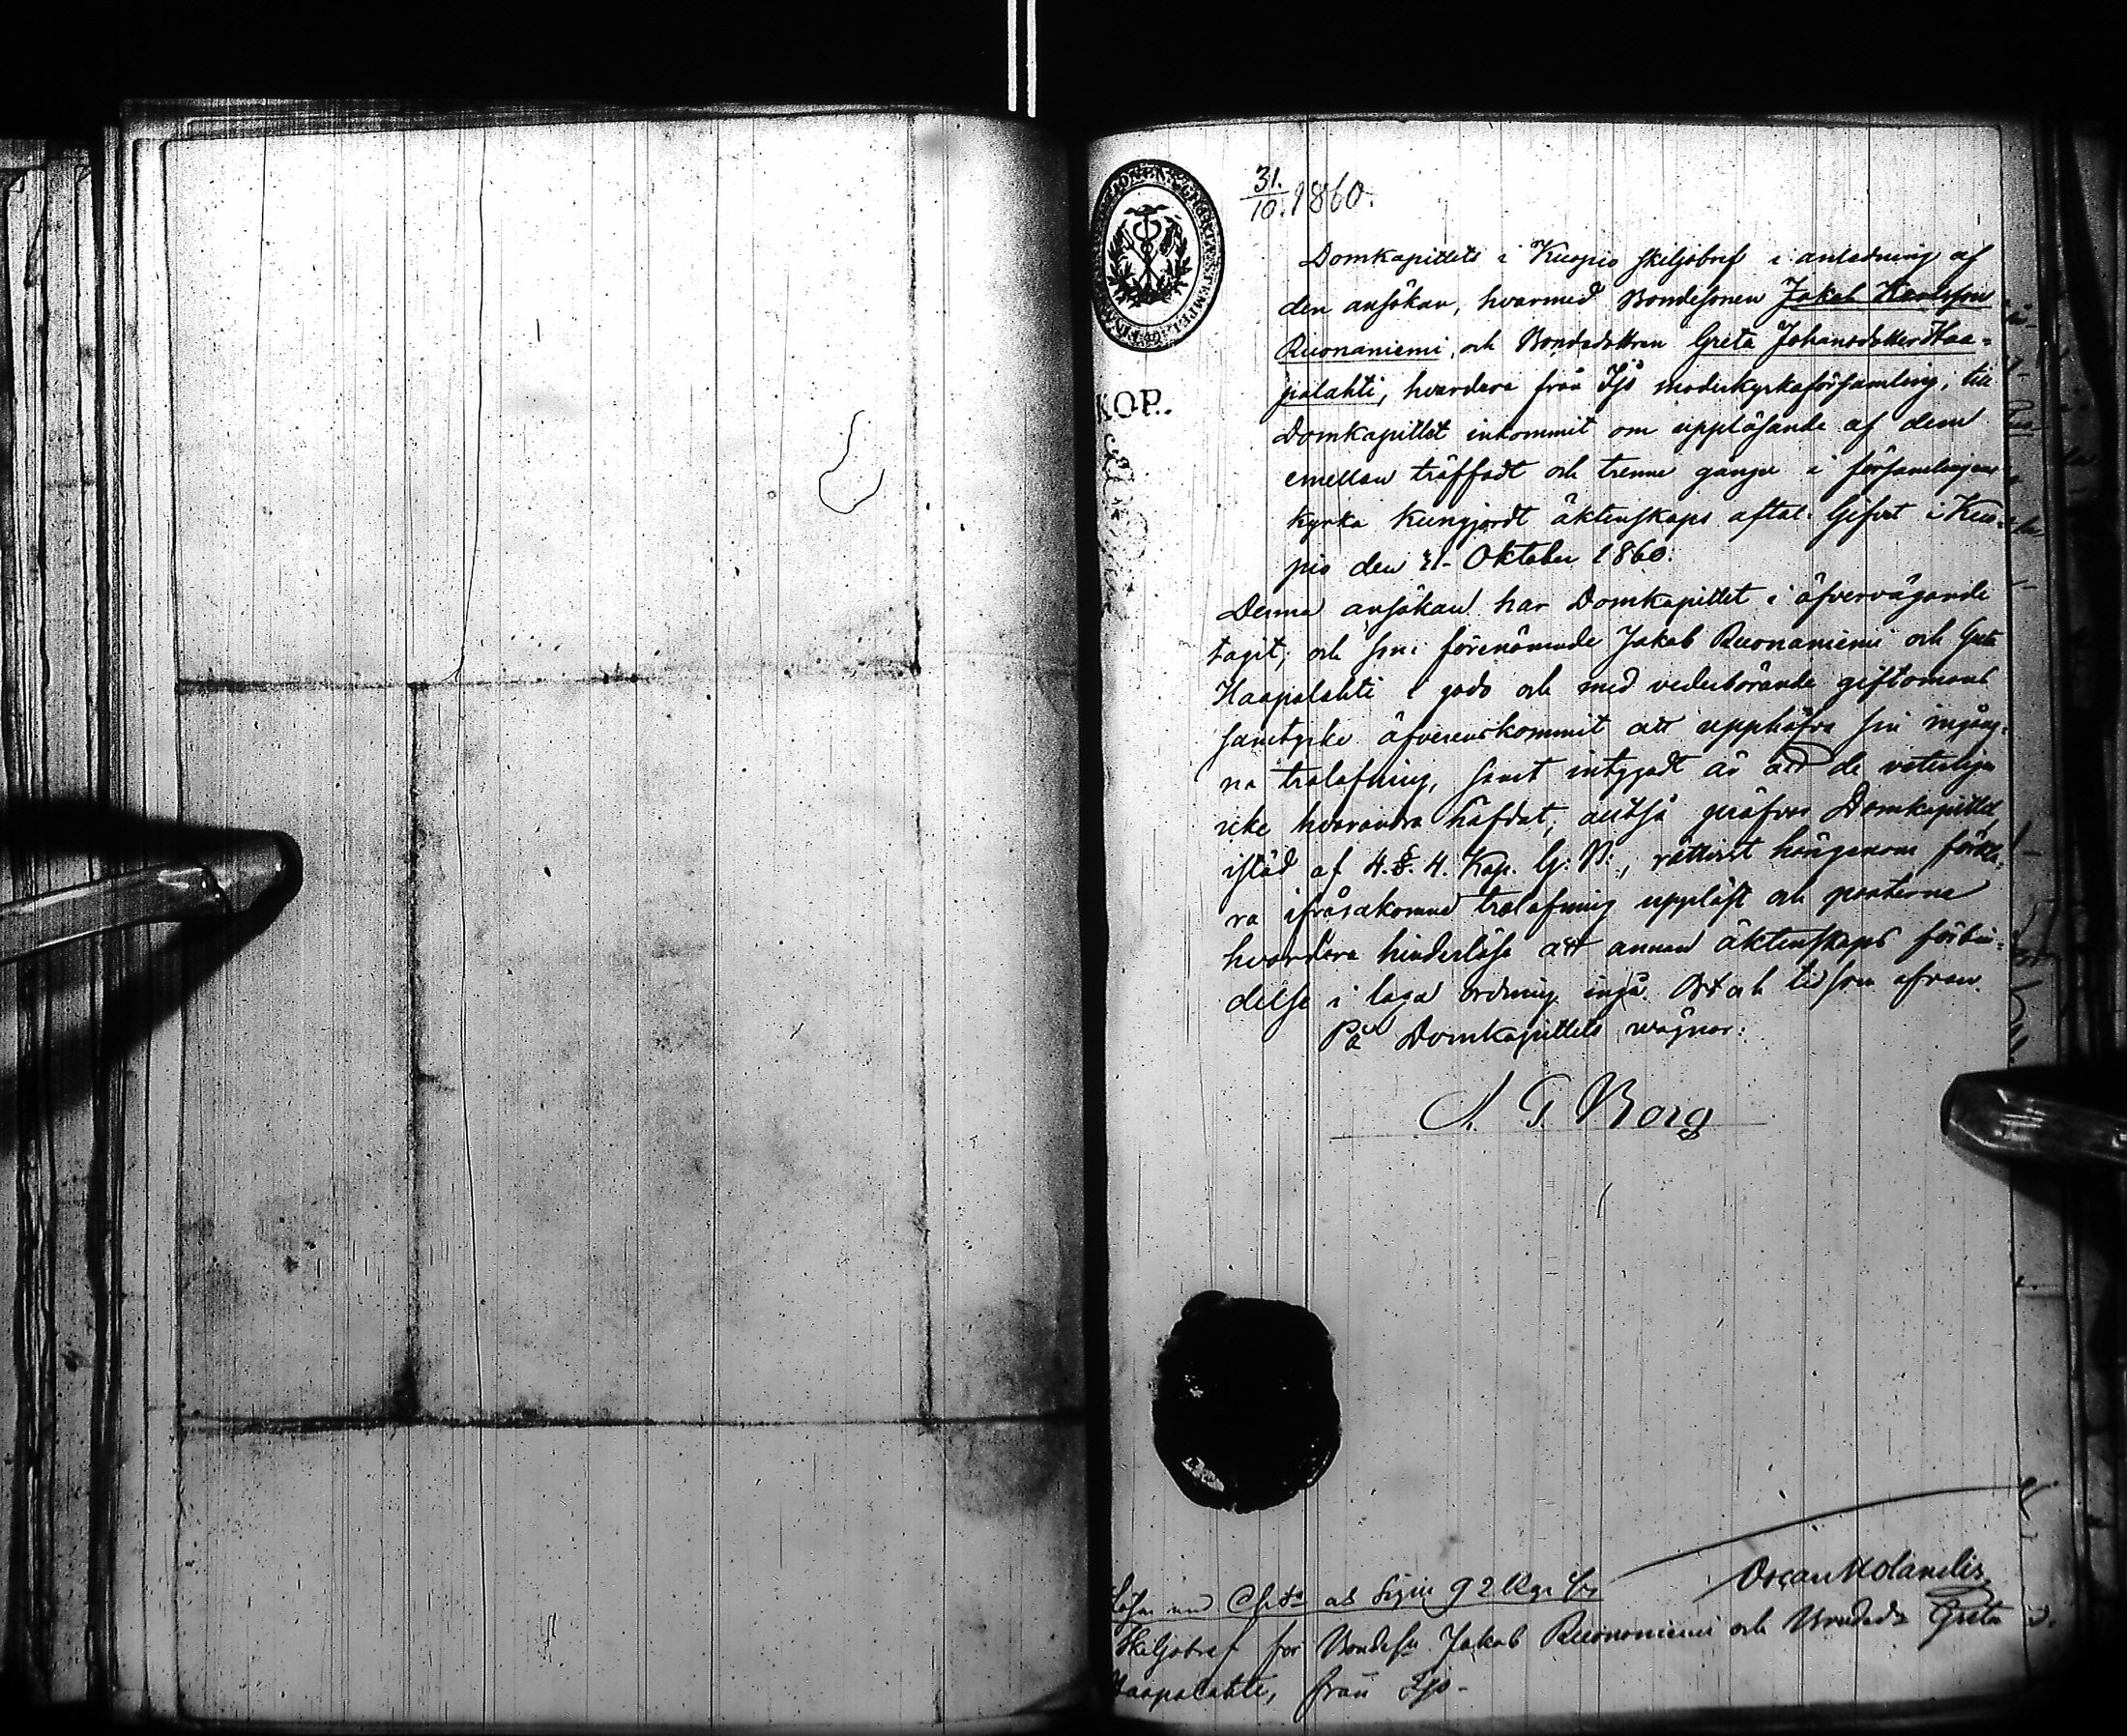 31.
10. 1860.
KOP.
Domkapitlets i Kuopio skiljobref i anledning af
den ansökan, hvarmed Bondesonen Jakob Karlsson
Ruonaniemi, och Bondedottren Greta Johansdotter Haa-
palahti, hvardera från Ijo moderkyrkoförsamling, till
Domkapitlet inkommit om upplösande af dem
emellan träffadt och trenne gånger i församlingens
kyrka kungjordt äktenskaps aftal. Gifvet i Kuo-
pio den 31. Oktober 1860.
Denna ansökan har Domkapitlet i öfvervägande
tagit; och som förenämnde Jakob Ruonaniemi och Greta
Haapalahti i godo och med vederbörande giftomans
samtycke öfverenskommit att upphäfva sin ingång-
na trolofning, samt intygadt är att de veterligen
icke hvarandra häfdat; alltså pröfvar Domkapitlet,
istöd af 4. §. 4. Kap. G: B:, rättvist härigenom förkla-
ra ifrågakomne trolofning upplöst och parterne
hvardera hinderlösa att annan äktenskaps förbin-
delse i laga ordning ingå. Ort och tid som ofvan.
På Domkapitlets wägnar:
A. G. Borg
Lösen med Ch. Sta 92
Skiljobref för Bondesn Jakob Ruonaniemi och Bonded. Greta
Haapalahti, från Ijo.